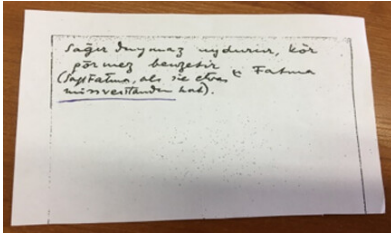 Sağır duymaz uydurur, kör
görmez benzetir  Fatma
(sagt Fatma, als sie etwas
missverstanden hat).